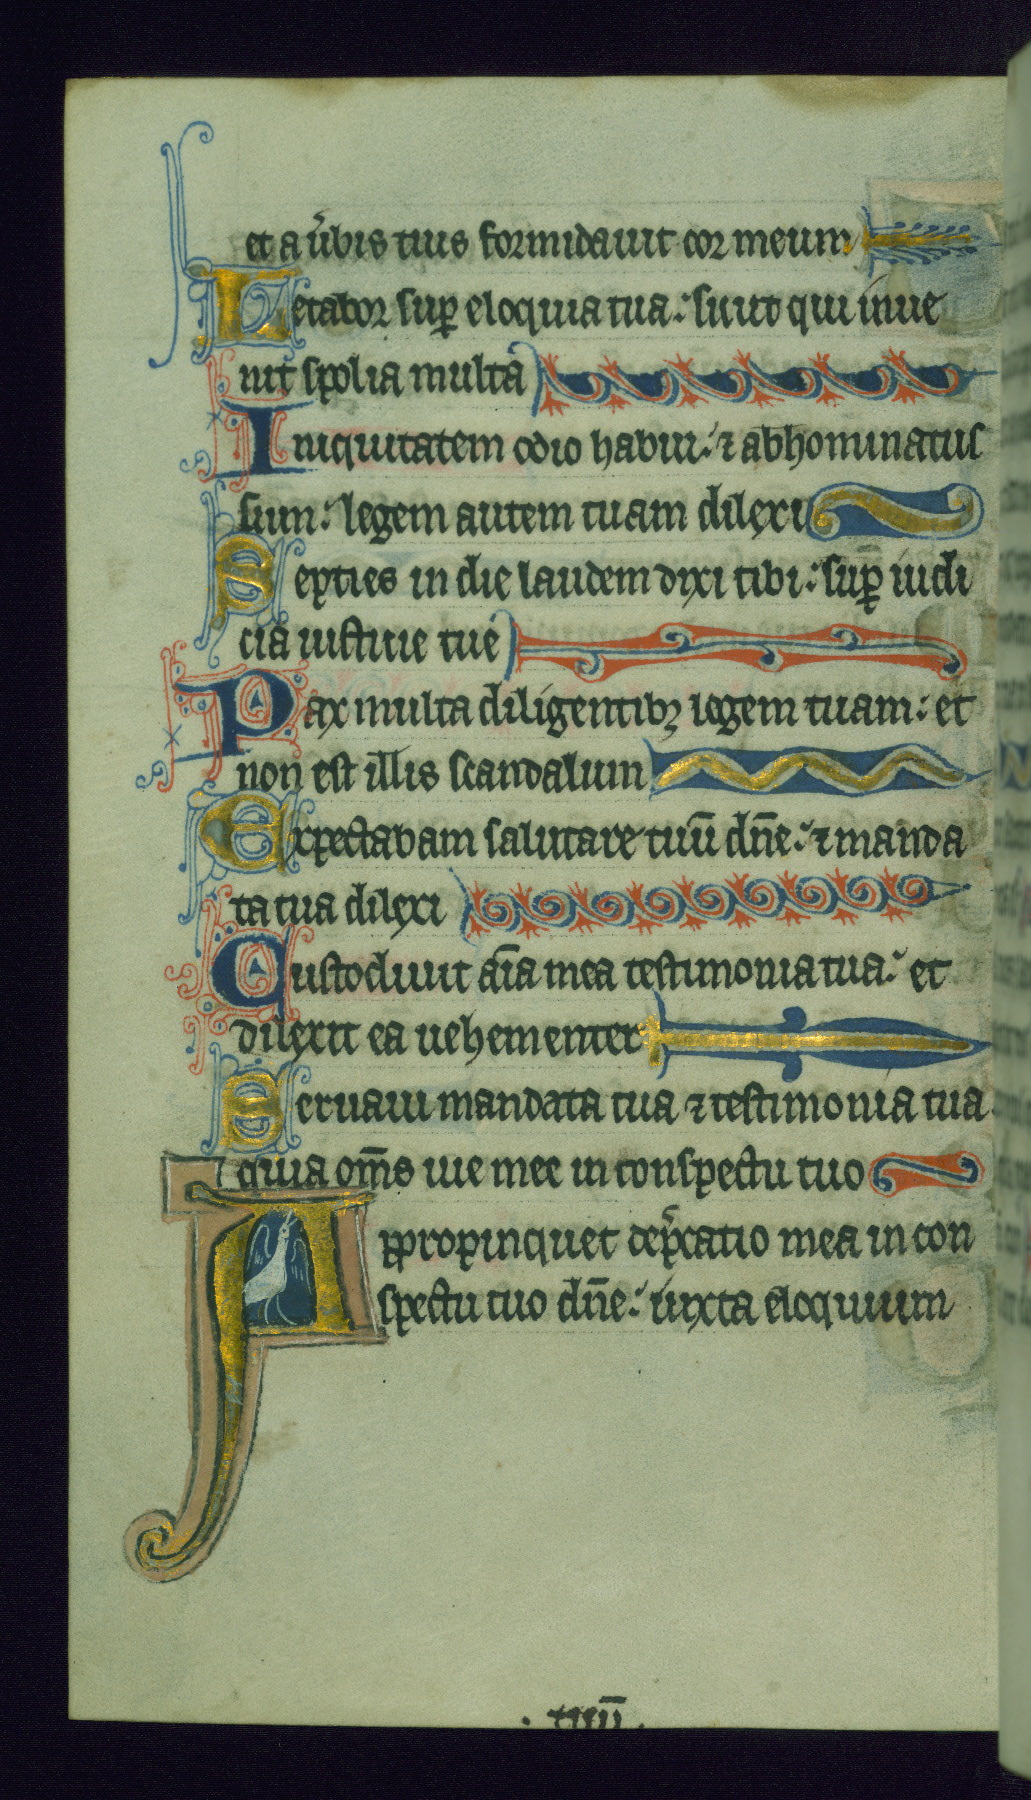 et a ũbis tuis formidauit cor meum
Letabor suꝑ eloquia tua: sicut qui inue
nit spolia multa
Iniquitatem odio habui: ⁊ abhominatus
sum: legem autem tuam dilexi
Septies in die laudem dixi tibi: suꝑ iudi
cia iusticie tue
Pax multa diligentibꝫ legem tuam: et
non est illis scandalum
Expectabam salutare tuū dñe: ⁊ manda
ta tua dilexi
Custodiuit aīa mea testimonia tua: et
dilexit ea uehementer
Seruaui mandata tua ⁊ testimonia tua
quia om̄s uie mee in conspectu tuo
Appropinquet dep̃catio mea in con
spectu tuo dñe: iuxta eloquium